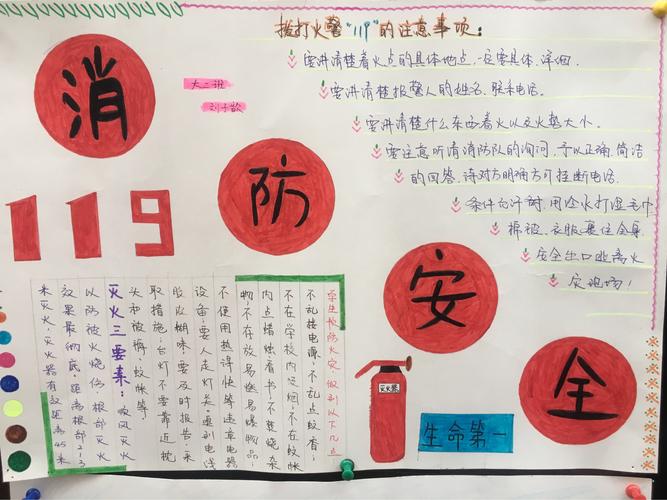 拨打火警“119”的注意事项:
要讲清楚着火点的具体地点,一定要具体、详细.
要讲清楚报警人的姓名、联系电话.
要讲清楚什么东西着火以及火势大小.
要注意听清消防队的询问,予以正确,简洁
的回答,待对方明确方可挂断电话.
条件允许时,用冷水打湿毛巾
棉被、衣服裹住全身
安全出口逃离火
灾现场!
大二班
刘子歆
消
防
安
全
119
学生预防火灾,做到以下几点
不乱接电源,不乱点蚊香;
不在学校内吸烟;不在蚊帐
内点蜡烛看书;不焚烧杂
物;不存放易燃易爆物品;
不使用热得快等违章电器
设备;要人走灯关;遇到电线
胶皮糊味,要及时报告,采
取措施;台灯不要靠近枕
头和被褥,蚊帐等
灭火三要素:
以防被火烧伤
灭火器
生命第一